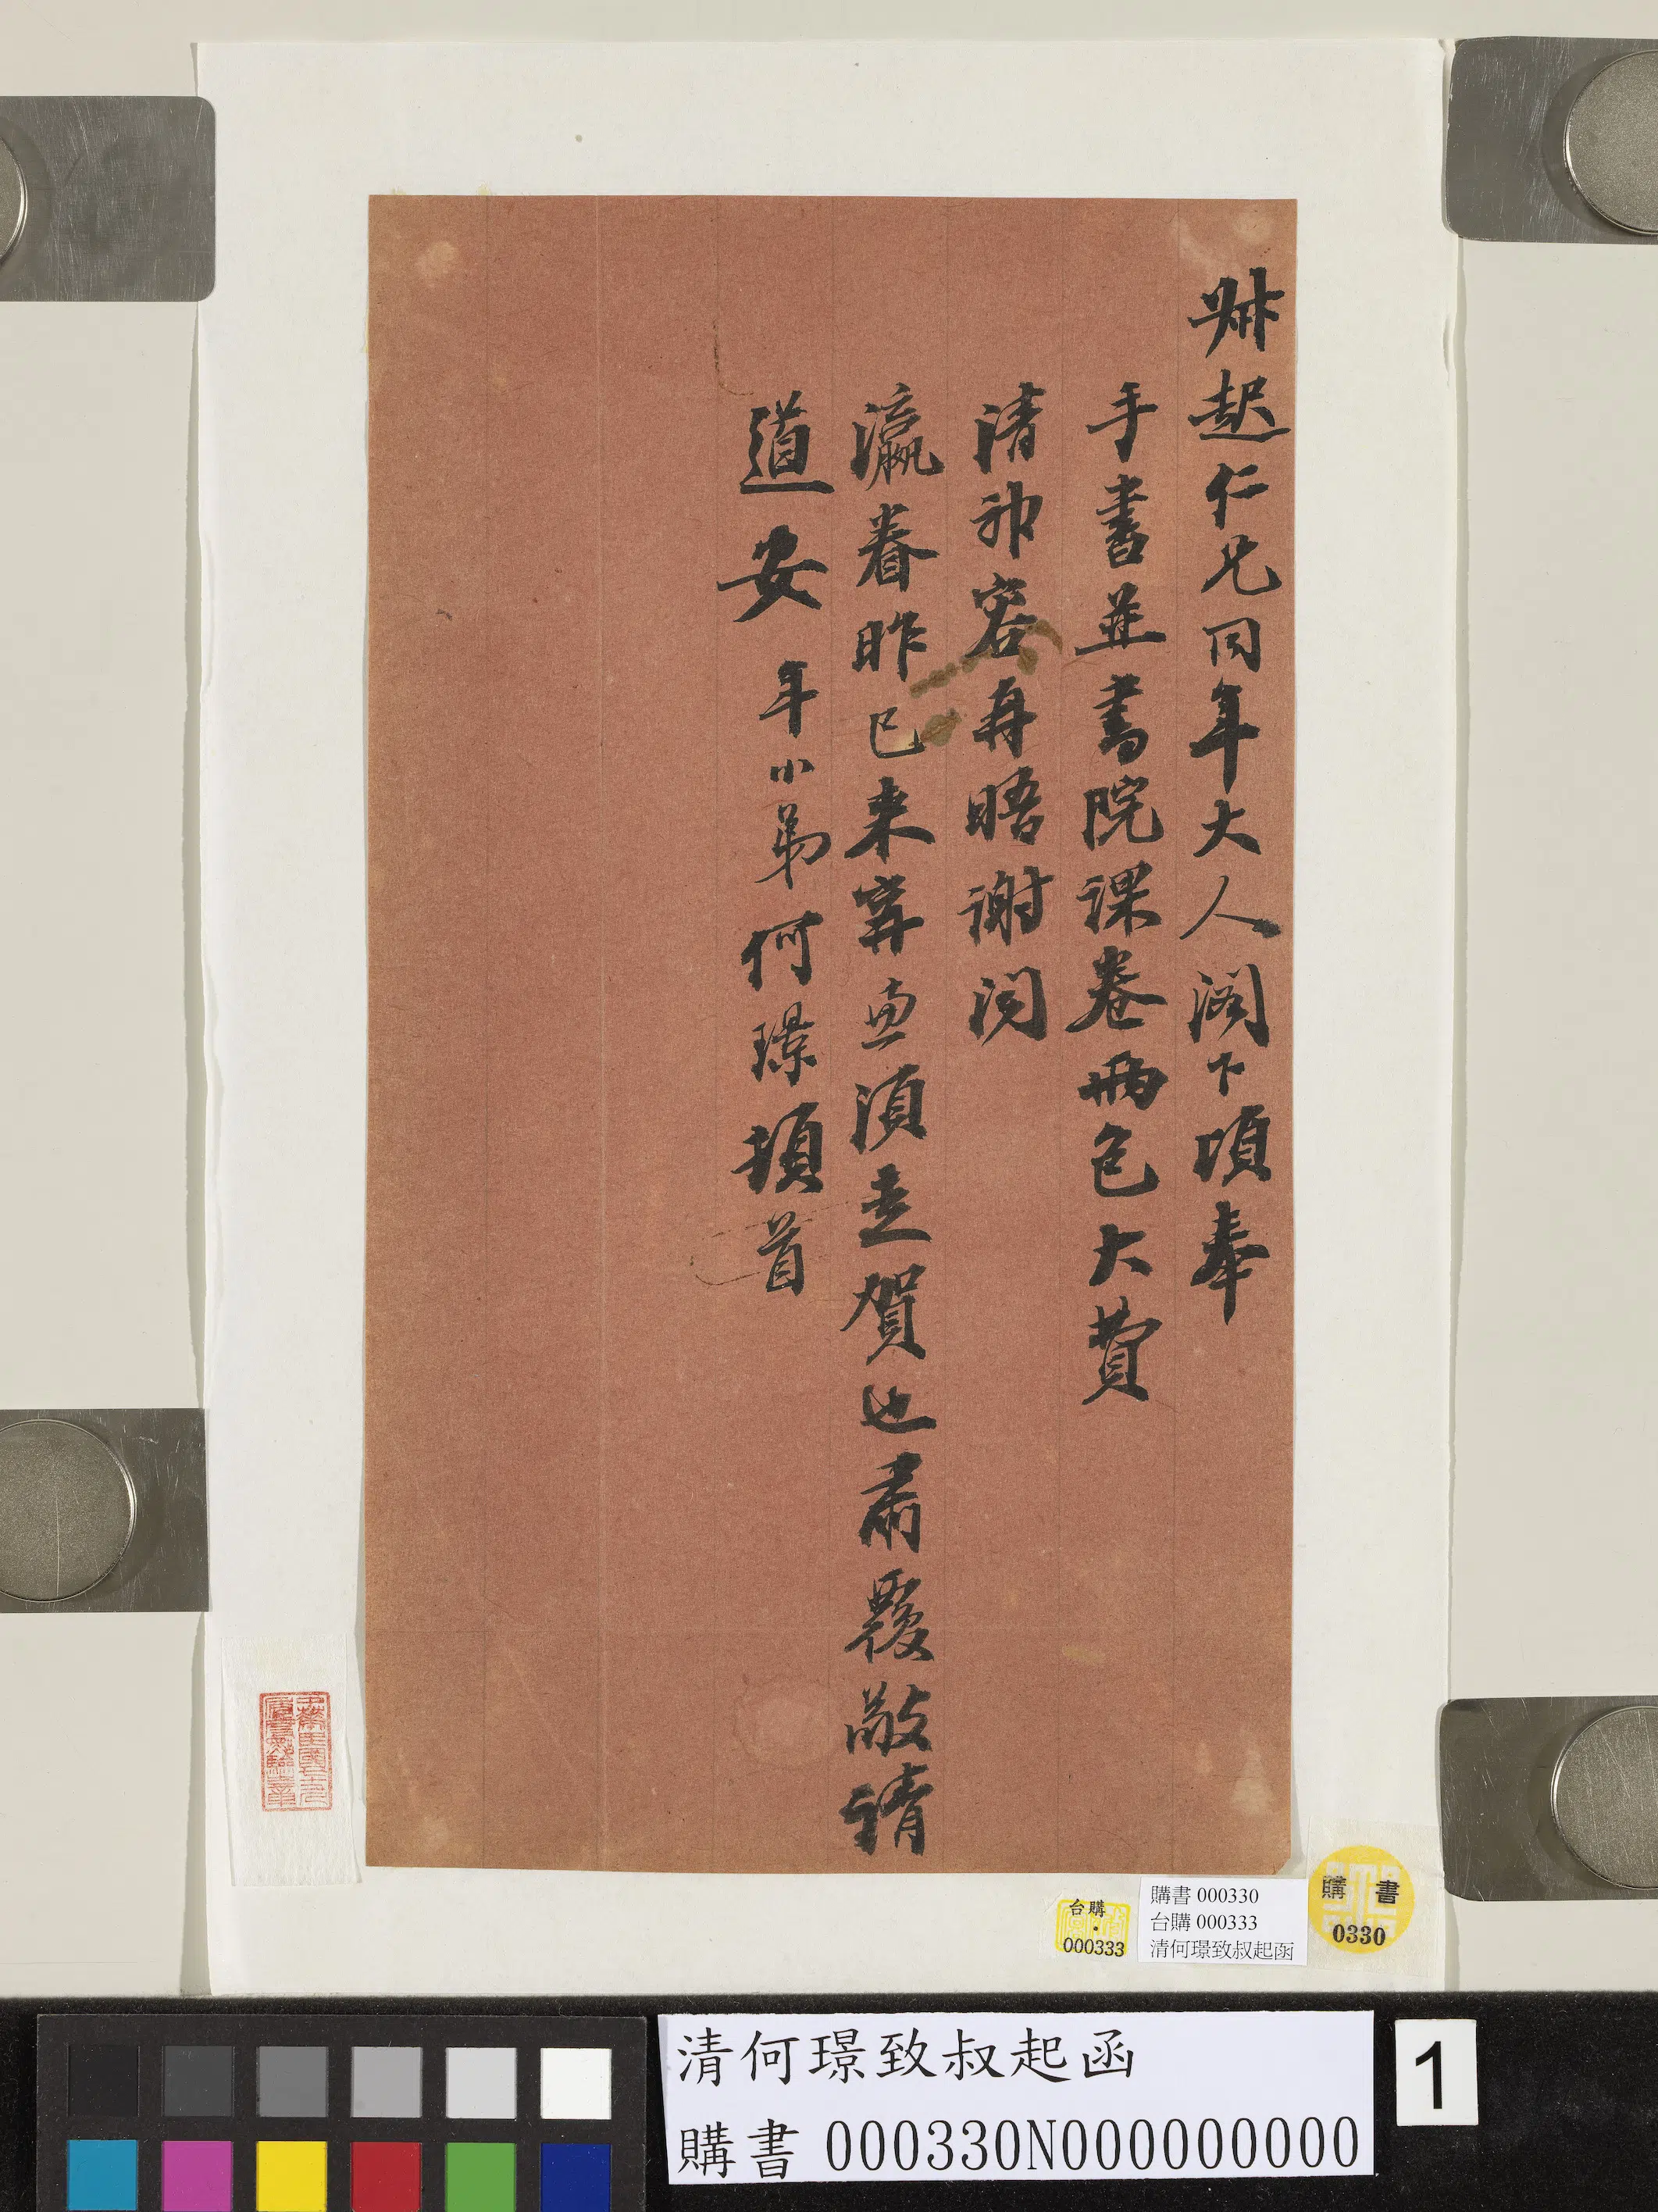 叔起仁兄同年大人閣下頃奉
手書並書院課卷兩包大費
清神容再晤謝聞
瀛眷昨已來寧亟須走賀也肅覆敬請
道安 年小弟何璟頓首
台購
000333
購書 000330
台購 000333
清何璟致叔起函
購書
0330
清何璟致叔起函
購書 000330N000000000
1